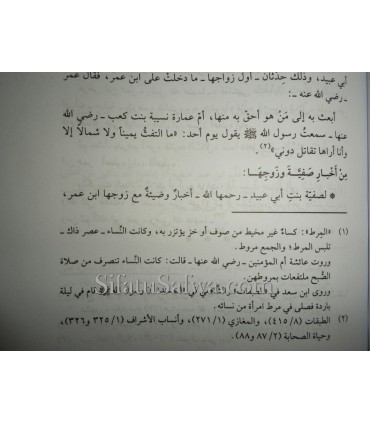 أبي عبيد، وذلك حِدْثان ـ أول زواجها ـ ما دخلتُ على ابن عمر، فقال عمر
ـ رضي الله عنه ـ:
أبعث به إلى مَنْ هو أحق به منها، أمّ عمارة نسيبة بنت كعب ـ رضي الله
عنها ـ سمعتُ رسول الله ﷺ يقول يوم أحد: «ما التفتُّ يميناً ولا شمالاً إلا
وأنا أراها تقاتل دوني»(٢).
مِنْ أَخبارِ صَفِيَّةَ وزَوجِهَا:
* لصفيّة بنتِ أبي عبيد ـ رحمها الله ـ أخبارٌ وضيئةٌ مع زوجها ابن عمر،
(١) «المِرط»: كساءٌ غير مخيط من صوف أو خز يؤتزر به، وكانت النِّساء ـ عصر ذاك ـ
تلبس المرط؛ والجمع مروط.
وروت عائشة أم المؤمنين ـ رضي الله عنها ـ قالت: كانت النِّساء تنصرف من صلاة
الصُّبح ملتفعات بمروطهن.
وروى ابن سعد في قام في ليلة
باردة فصلى في مرط امرأة من نسائه.
(٢) الطبقات (٤١٥/٨)، والمغازي (٢٧١/١)، وأنساب الأشراف (٣٢٥/١ و٣٢٦)،
وحياة الصحابة (٨٧/٢ و٨٨).
SifatuSafwa.com